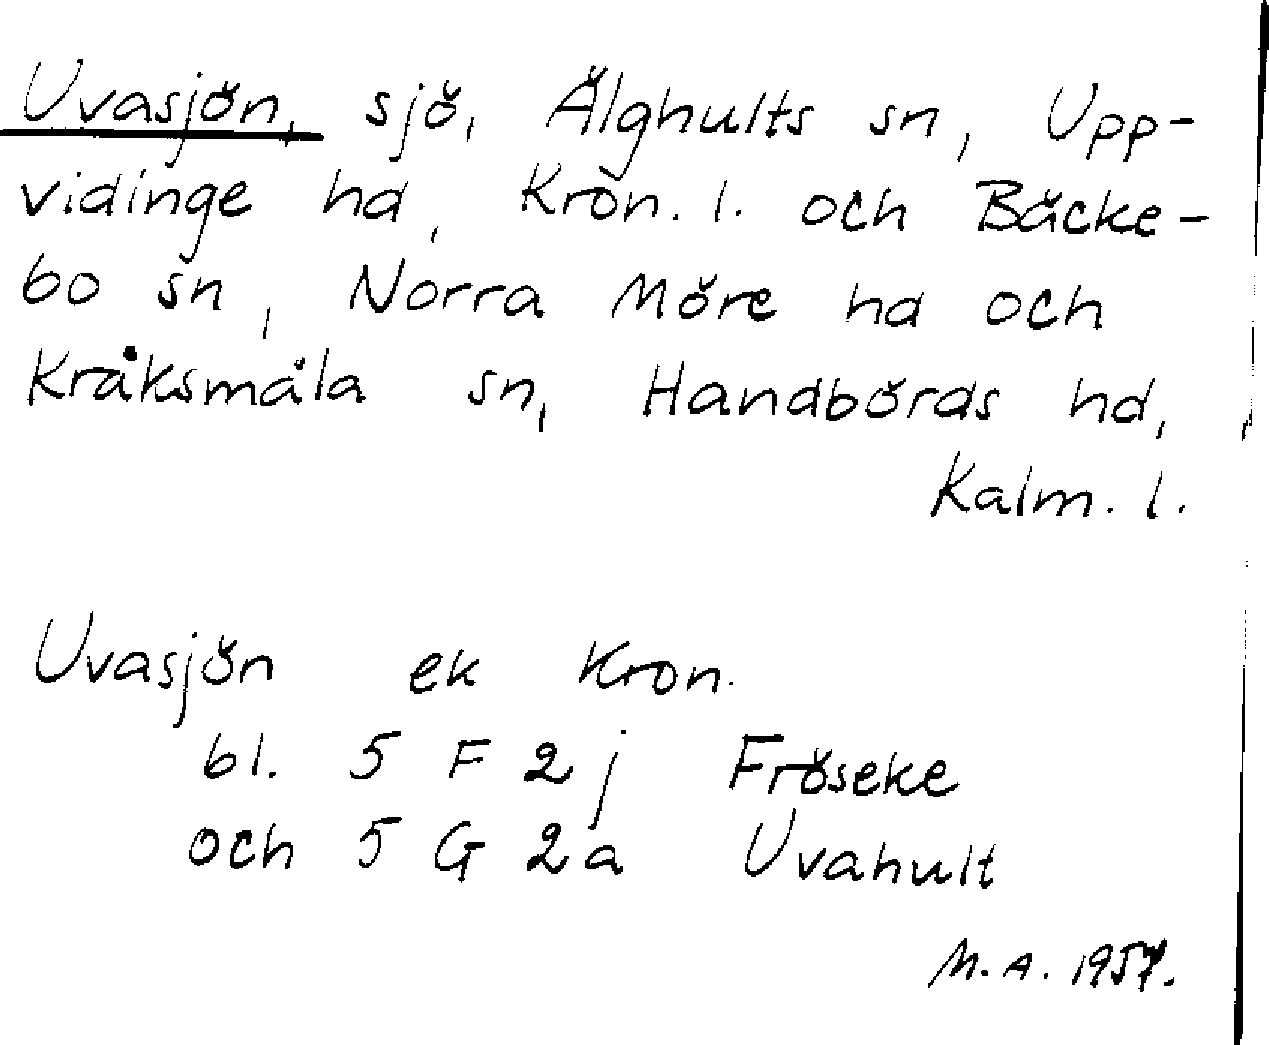 Uvasjön, sjö, Älghults sn, Upp-
vidinge hd, Kron. l. och Bäcke-
bo sn, Norra Möre hd och
Kråksmåla sn, Handbörds hd,
Kalm. l.
Uvasjön ek Kron.
bl. 5 F 2 j Fröseke
och 5 G 2 a Uvahult
M. A. 1957.